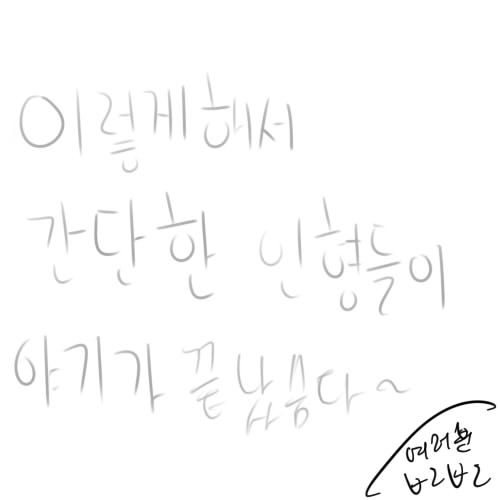 이렇게해서
간단한 인형들이
야기가 끝났슴다~
여러분
ㅂㄹㅂㄹ